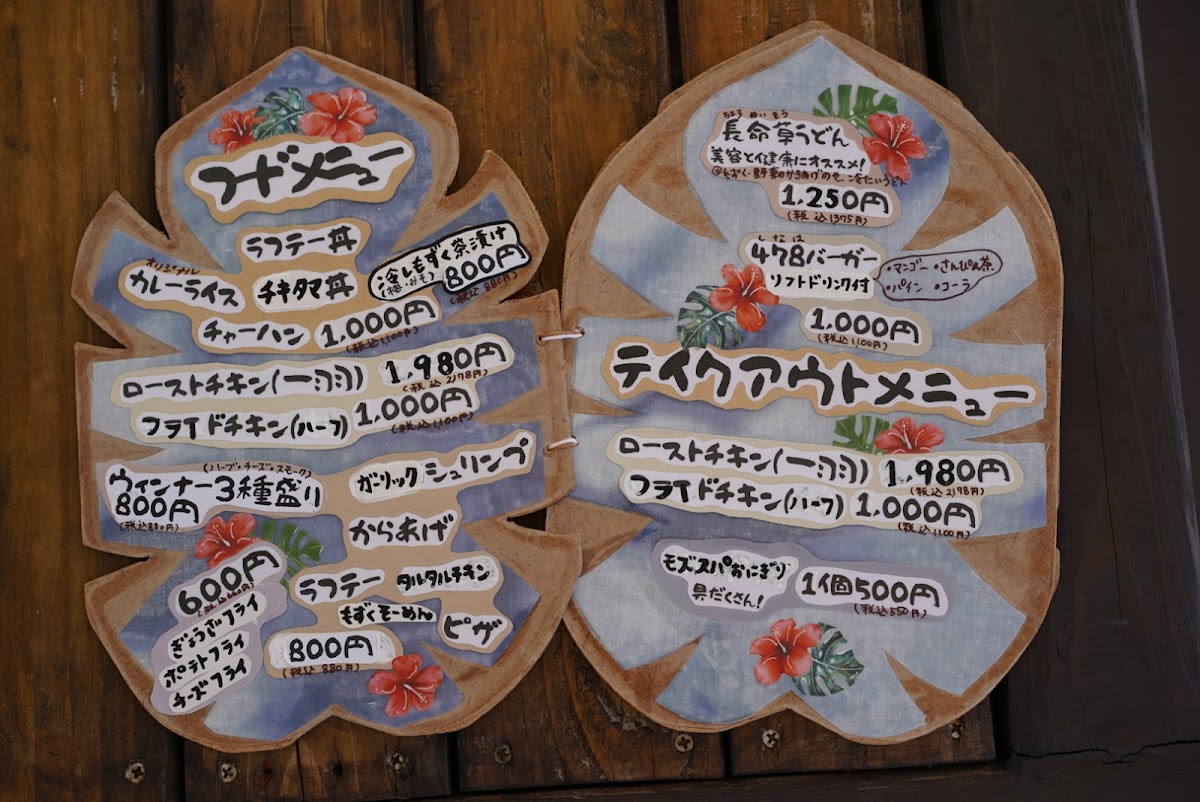 フードメニュー
ラフテー丼
オリジナル
カレーライス
チキタマ丼
・冷しもずく茶漬け
(梅・みそ)
800円
(税込880円)
チャーハン
1,000円
(税込1,100円)
ローストチキン(一羽)
1,980円
(税込2178円)
フライドチキン(ハーフ)
1,000円
(税込1,100円)
(ハーブ・チーズ・スモーク)
ウィンナー3種盛り
800円
(税込880円)
ガーリックシュリンプ
からあげ
ラフテー
タルタルチキン
もずくそーめん
ピザ
800円
(税込880円)
600円
(税込660円)
ぎょうざフライ
ポテトフライ
チーズフライ
ちょうめいそう
長命草うどん
美容と健康にオススメ!
1,250円
(税込1375円)
しなは
478バーガー
ソフトドリンク付
・マンゴー ・さんぴん茶
・パイン ・コーラ
1,000円
(税込1,100円)
テイクアウトメニュー
ローストチキン(一羽)
1,980円
(税込2178円)
フライドチキン(ハーフ)
1,000円
(税込1,100円)
モズスパおにぎり
具だくさん!
1個500円
(税込550円)